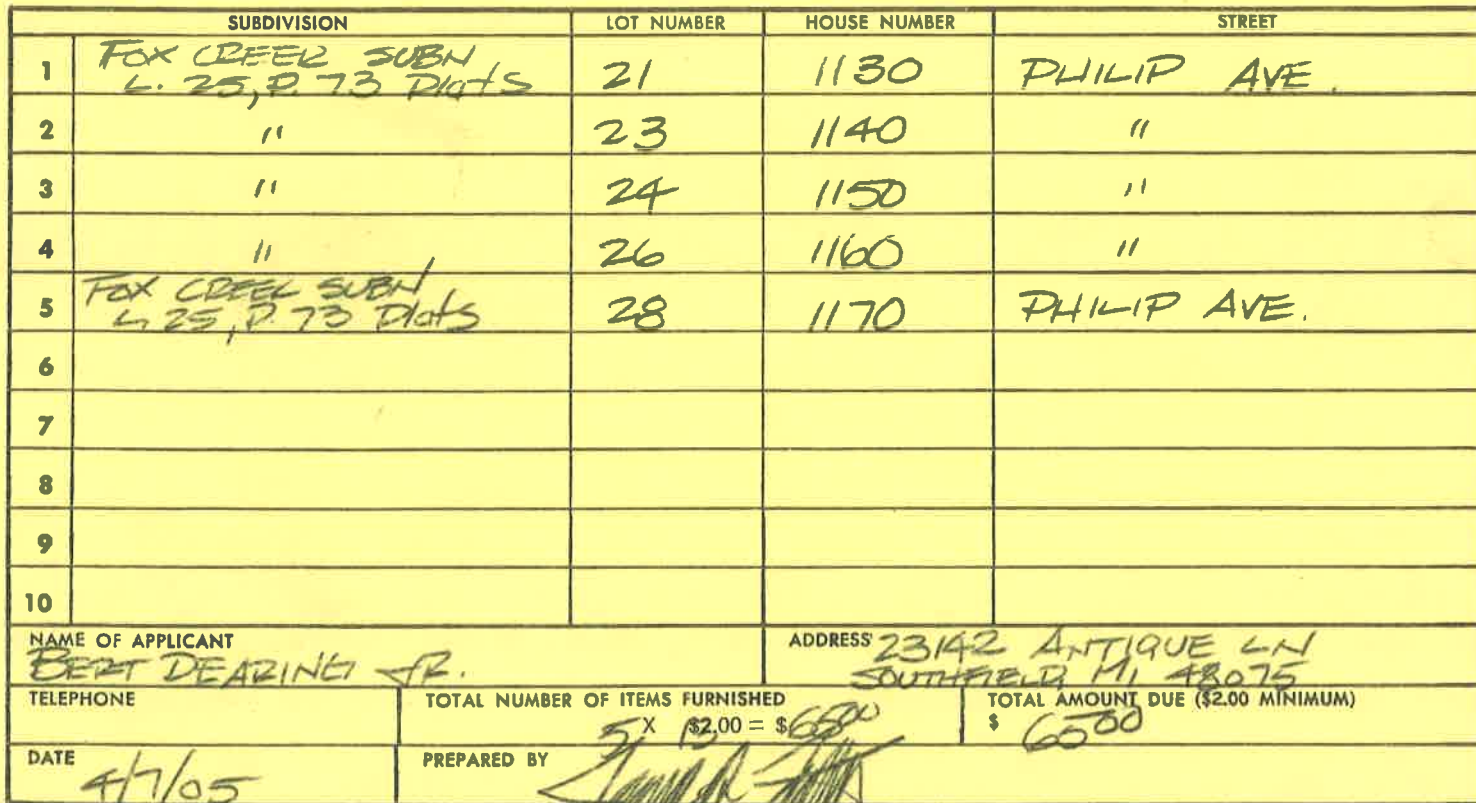 SUBDIVISION LOT NUMBER HOUSE NUMBER STREET
1 FOX CREEK SUBN L. 25, P. 73 Plats 21 1130 PHILIP AVE.
2 " 23 1140 "
3 " 24 1150 "
4 " 26 1160 "
5 FOX CREEK SUBN L. 25, P. 73 Plats 28 1170 PHILIP AVE.
6
7
8
9
10
NAME OF APPLICANT ADDRESS 23142 ANTIQUE LN
BERT DEARING JR. SOUTHFIELD, MI 48075
TELEPHONE TOTAL NUMBER OF ITEMS FURNISHED TOTAL AMOUNT DUE ($2.00 MINIMUM)
5 X 13 $2.00 = $ 65.00 $ 65.00
DATE PREPARED BY
4/7/05